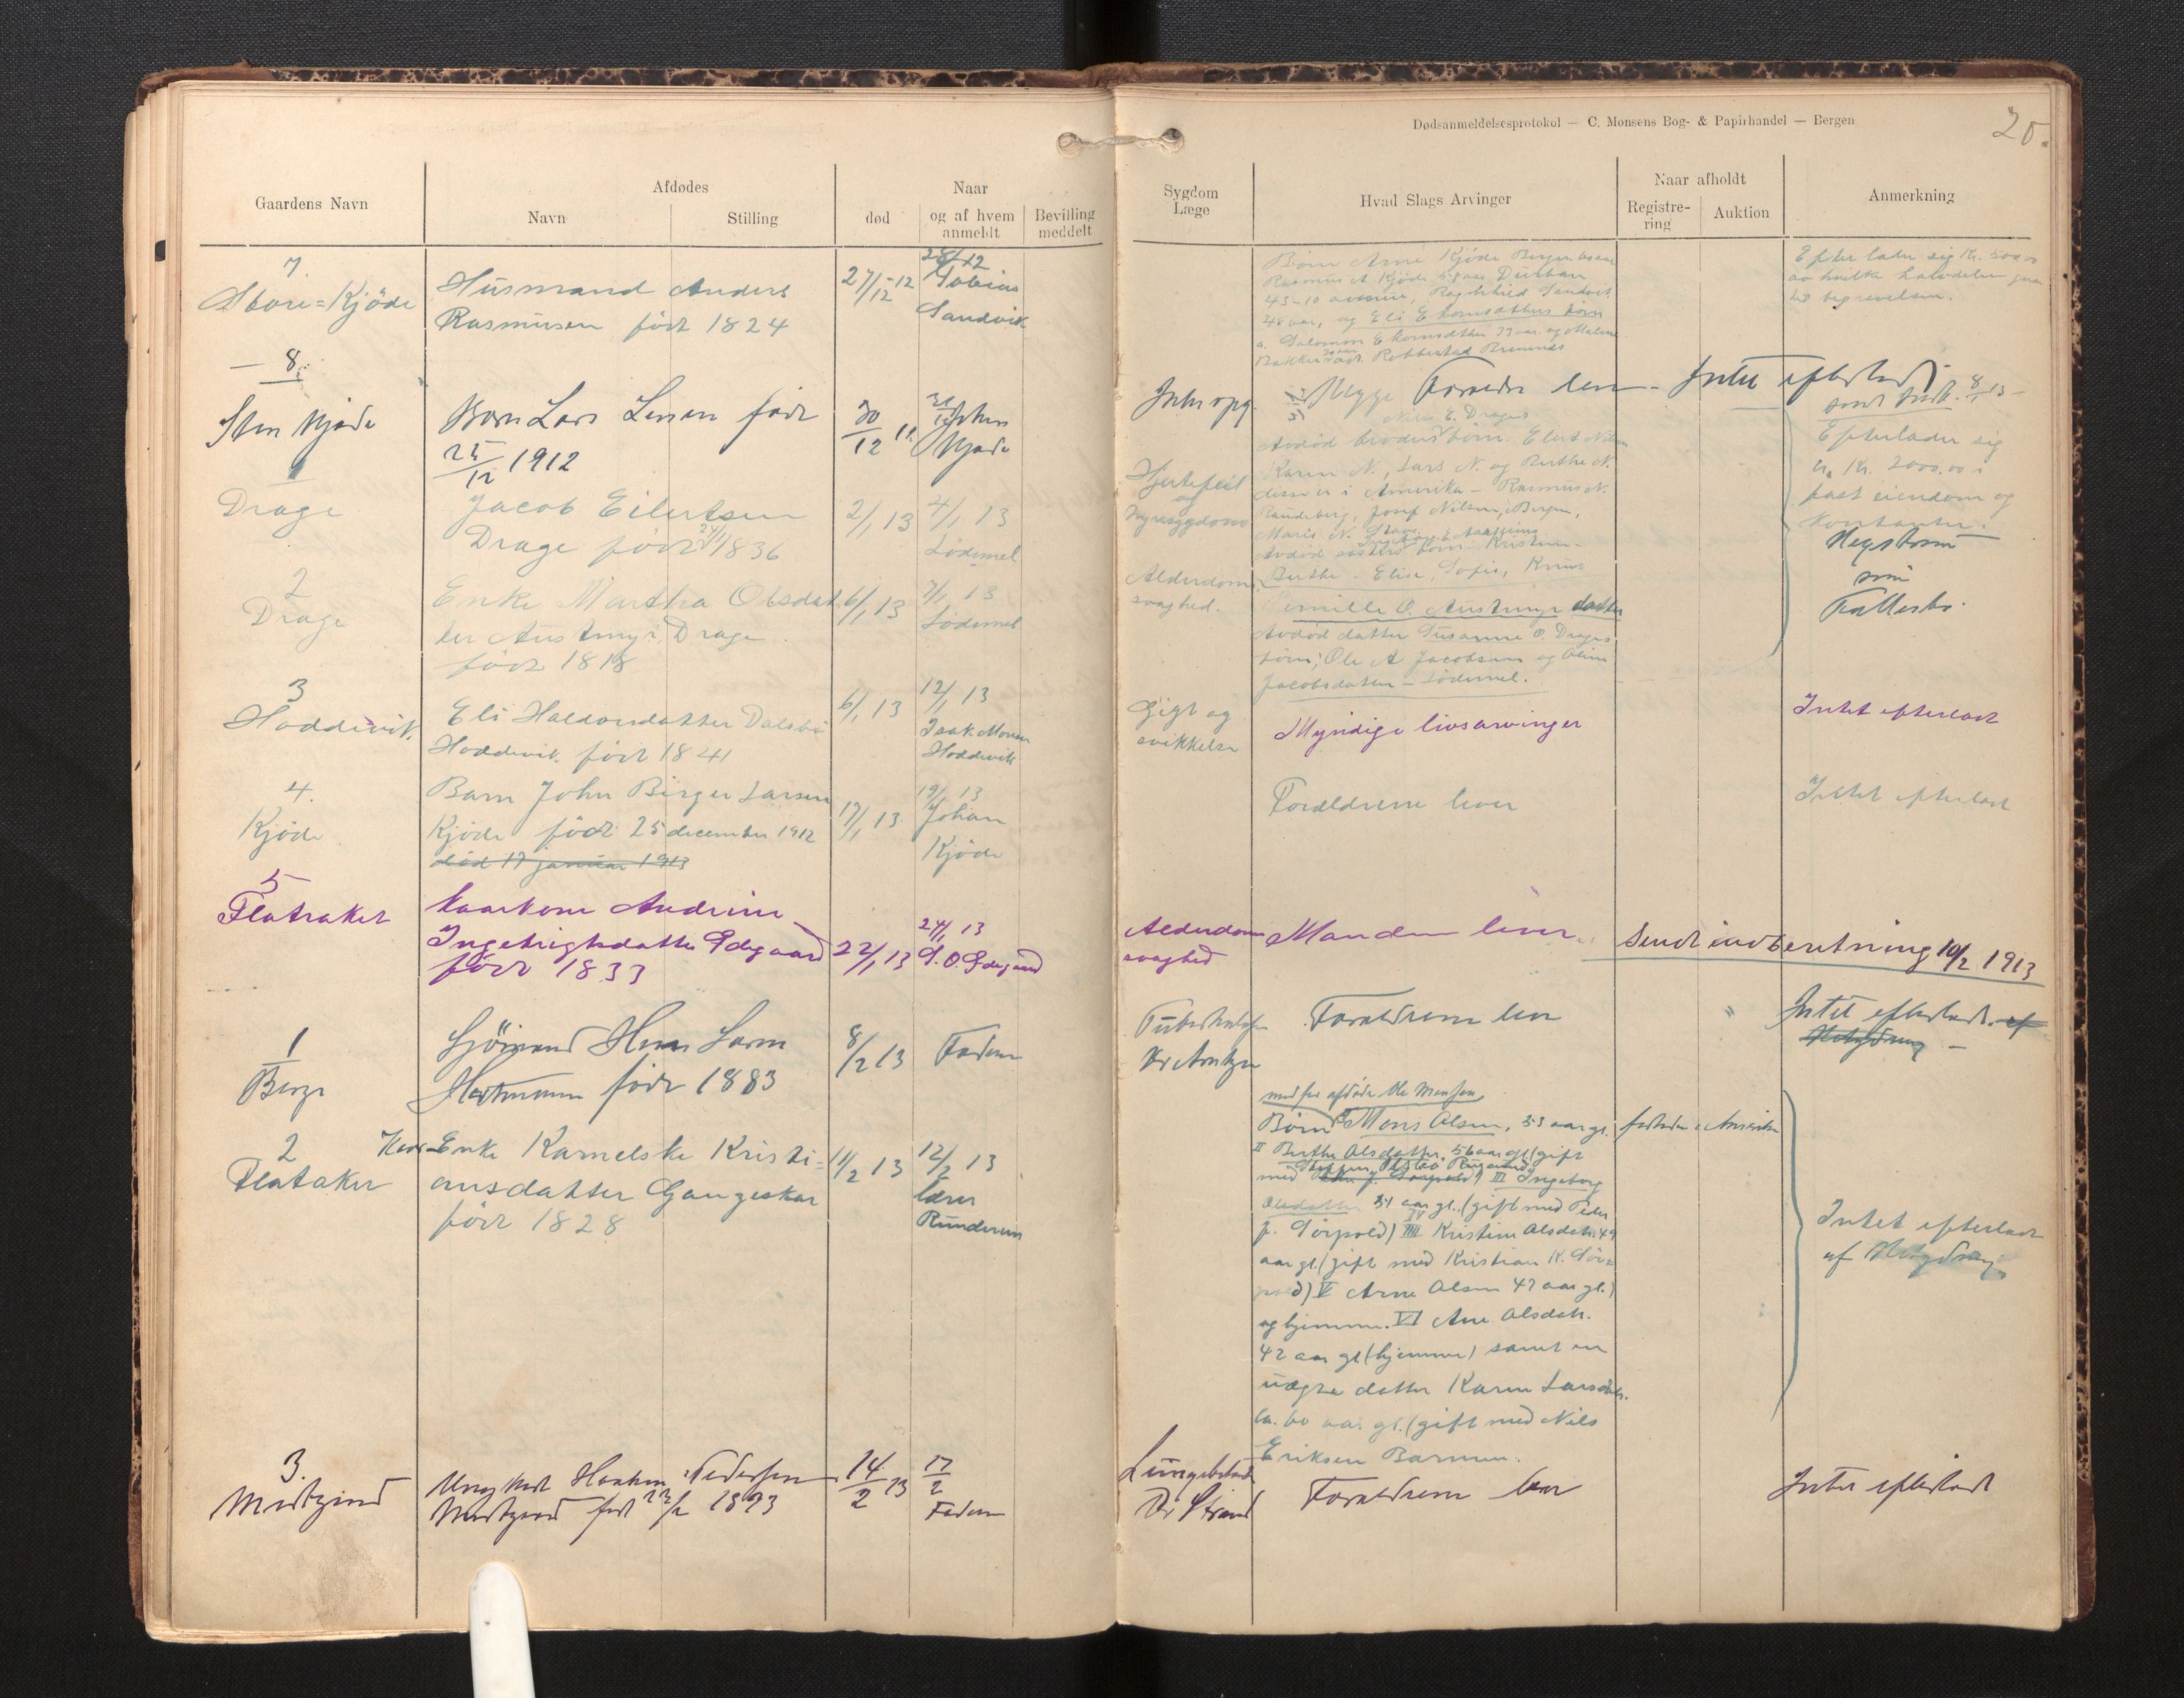 Dødsanmeldelsesprotokol — C. Monsens Bog- & Papirhandel — Bergen
20.
Gaardens Navn
Afdødes
Navn
Stilling
død
Naar
og af hvem
anmeldt
Bevilling
meddelt
Sygdom
Læge
Hvad Slags Arvinger
Naar afholdt
Registre-
ring
Auktion
Anmerkning
7.
Store=Kjøde
Husmand Anders
Rasmusen født 1824
27/12-12
28/12
Tobias
Sandvik
Børn Arne Kjøde Bergen
Rasmus A Kjøde 58 aar Durban
Ragnhild Sandvik
48 aar, og Eli
a. Salomon
Bakke Robbestad Bremnes
Efterlater sig Kr. 500,00
av hvilke halvdelen
til begravelsen.
8.
Kjøde
Barn Lars Larsen født
25/12 1912
30/12 12
31/12 Johan
Kjøde
Forældre lever
Intet efterladt
sendt Indb. 8/1 13
1
Drage
Jacob Eilertsen
Drage født 1836
2/1 13
4/1 13
Lødemel
Hjertefeil
og
Nyresygdom
E. Drages
Avdød broders børn. Elert Nilsen
Karen N., Lars N. og Berthe N.
disse er i Amerika — Rasmus N.
Raudeberg, Josef Nilsen, Bergen,
Marie N. Stave
Avdød søsters børn Kristine
Berthe Elise, Sofie,
Efterlader sig
ca. Kr. 2000.00 i
fast eiendom og
kontanter.
2
Drage
Enke Martha Olsdat
ter Austmyr Drage
født 1818
6/1 13
7/1 13
Lødemel
Alderdoms
svaghed.
Pernille O. Austmyr datter
Avdød datter Susanne O. Drages
børn; Ole A Jacobsen og Oline
Jacobsdatter — Lødemel.
3
Hoddevik
Eli Haldorsdatter Dalsbø
Hoddevik født 1841
6/1 13
12/1 13
Isak Monsen
Hoddevik
Gigt og
svikkelse
Myndige livsarvinger
Intet efterladt
4.
Kjøde
Barn John Birger Larsen
Kjøde født 25 december 1912
død 17 januar 1913
17/1 13
19/1 13
Johan
Kjøde
Forældrene lever
Intet efterladt
5
Flatraket
Kaarkone Andrine
Ingebrigtsdatter Ødegaard
født 1833
22/1 13
24/1 13
S. O. Ødegaard
Alderdoms
svaghed
Manden lever.
Sendt indberetning 10/2 1913
1
Berge
Sjømand Hans Larsen
født 1883
8/2 13
Faderen
Tuberkulose
Forældrene lever
Intet efterladt. af
2
Flataker
Enke Karnelske Kristi=
ansdatter Gangeskar
født 1828
11/2 13
12/2 13
lærer
Rundereim
med før afdøde Ole Monsen
Børn I Mons Olsen, 53 aar gl. forhaden i Amerika
II Berthe Olsdatter, 56 aar gl (gift
med III Ingeborg
Olsdatter 51 aar gl. (gift med Peder
J. Sørpold) IV Kristine Olsdatr. 49
aar gl. (gift med Kristian K. Sør=
pold) V Arne Olsen 47 aar gl.)
og hjemme. VI Ane Olsdatr.
42 aar gl (hjemme) samt en
uægte datter Karen Larsdatr.
ca. 60 aar gl. (gift med Nils
Eriksen Barmen.
Intet efterladt
af
3.
Midtgaard
Ungkarl Haakon Pedersen
Midtgaard født 1893
14/2 13
17/2
Faderen
Dr Strand
Forældrene lever
Intet efterladt